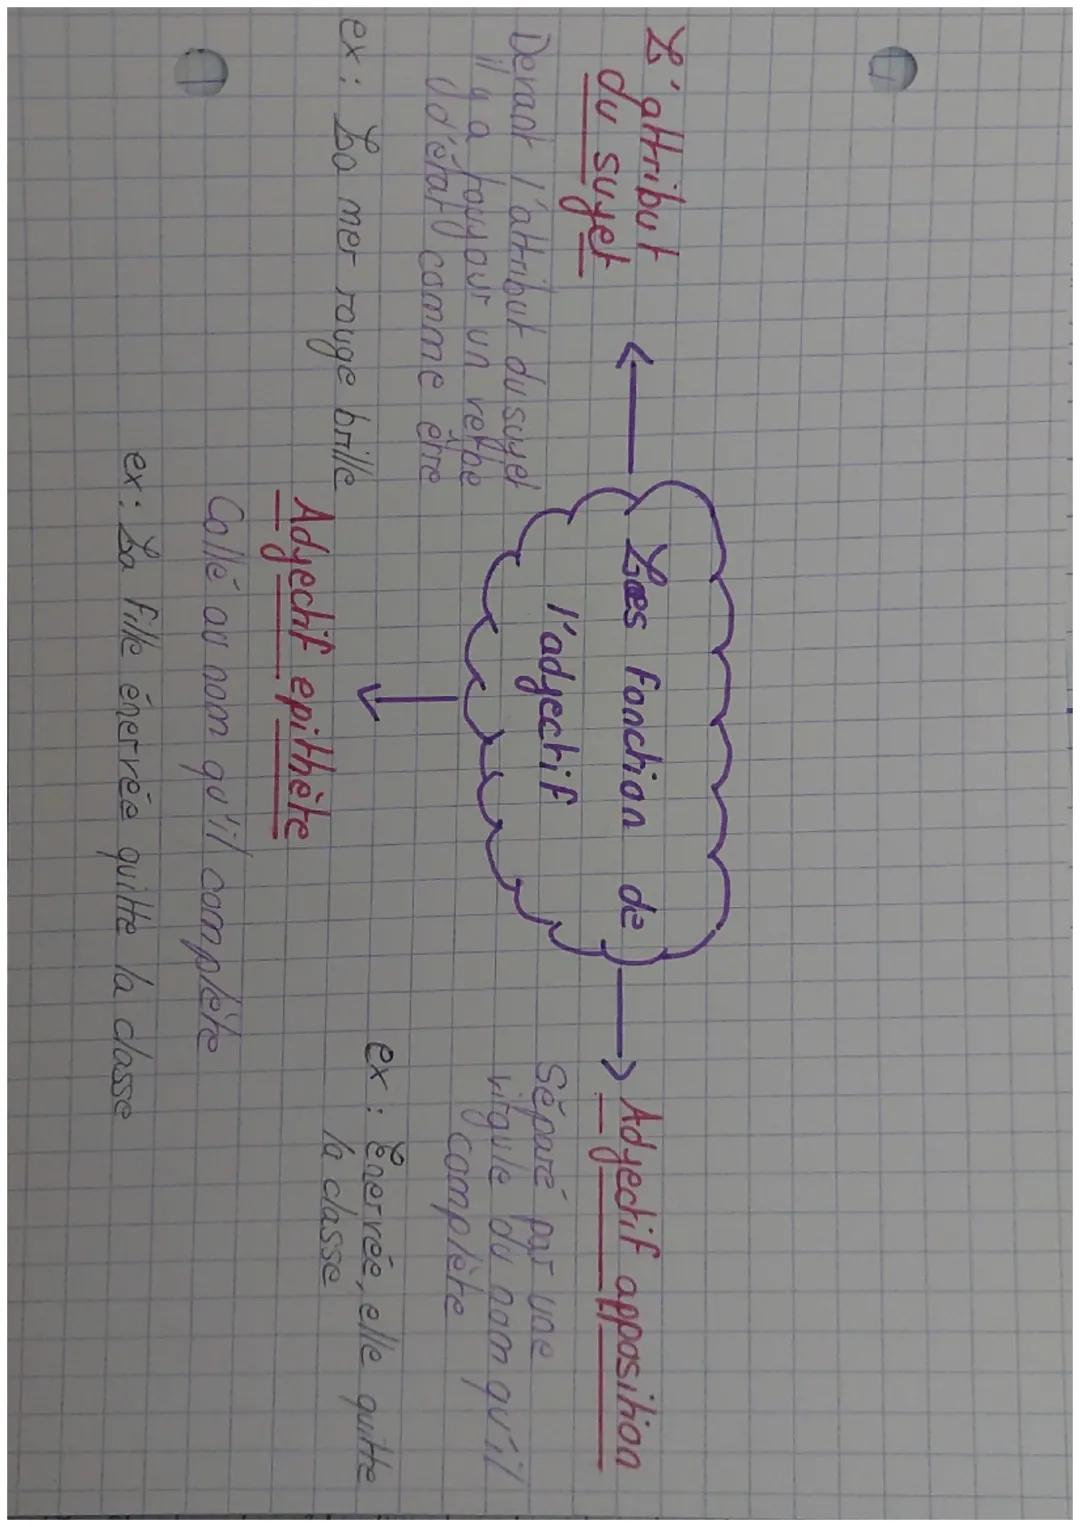 Les fonction de
l'adjectif
L'attribut
du sujet
Devant l'attribut du sujet
il y a toujour un verbe
d'état comme être
ex : La mer rouge brille
Adjectif epithète
Collé au nom qu'il complète
ex : La fille énervée quitte la classe
Adjectif apposition
Séparé par une
virgule du nom qu'il
complète
ex : Énervée, elle quitte
la classe